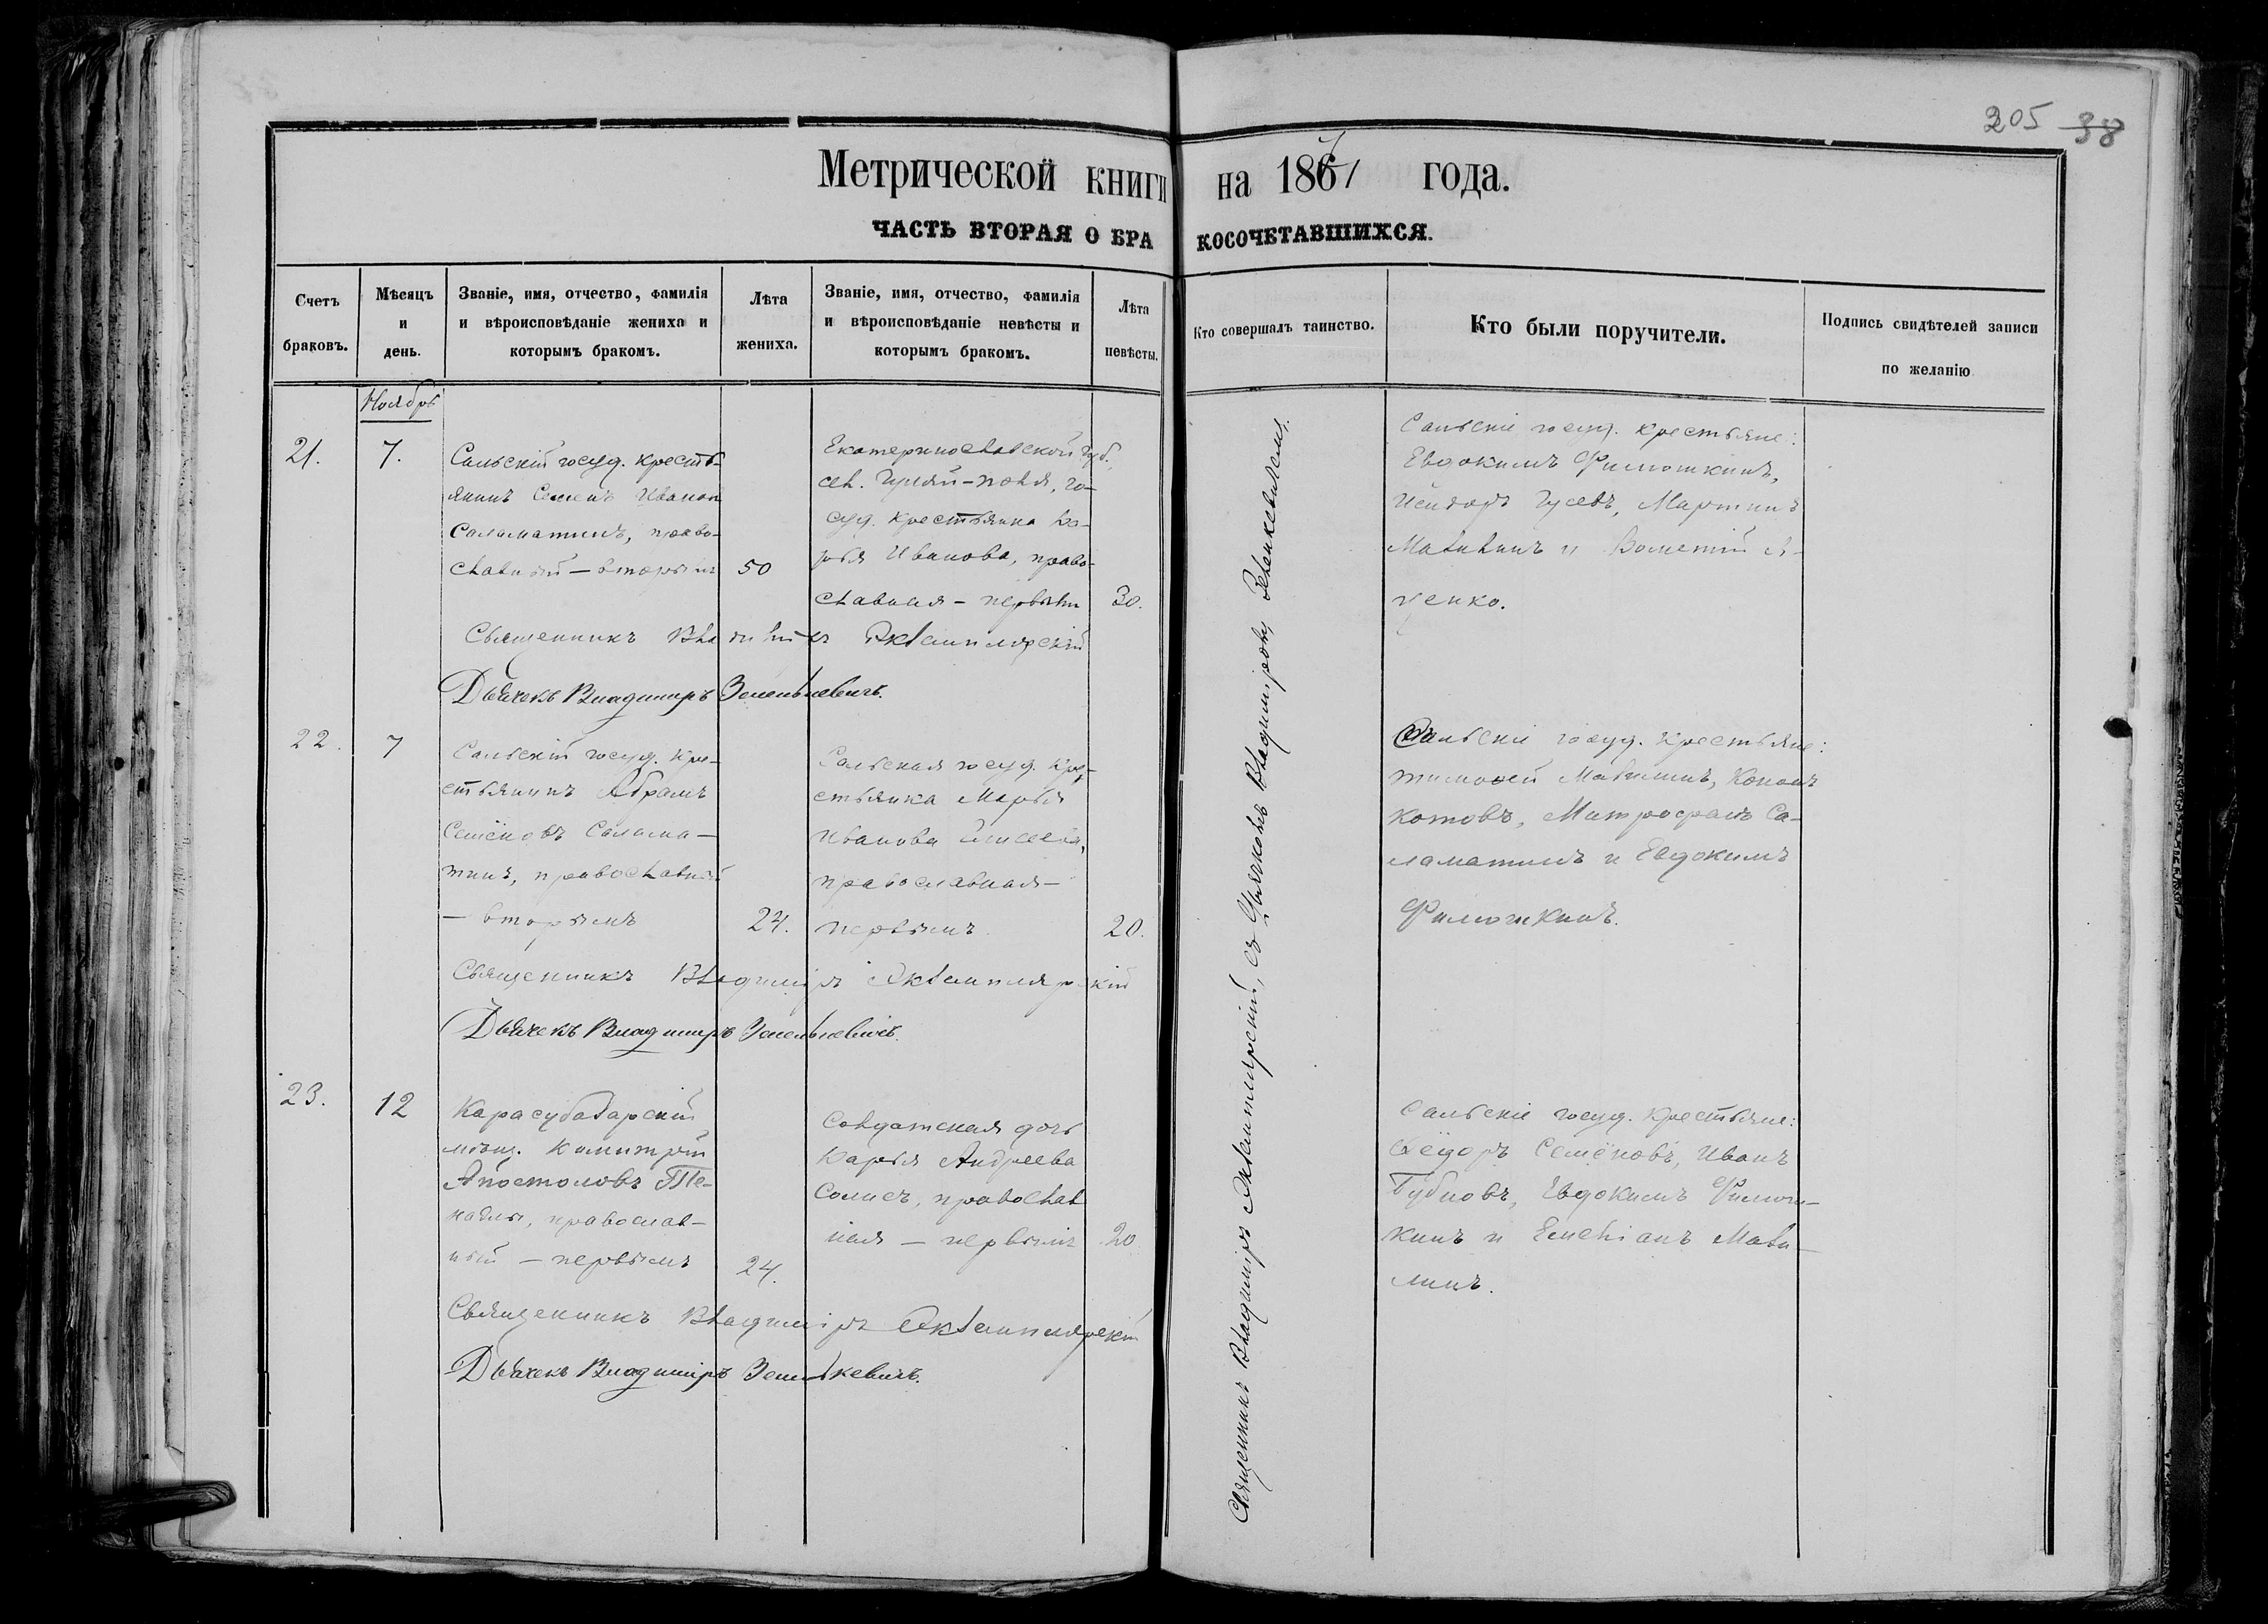 205 38
Метрической книги на 1861 года.
ЧАСТЬ ВТОРАЯ О БРАКОСОЧЕТАВШИХСЯ.
Счетъ браковъ.
Мѣсяцъ и день.
Званіе, имя, отчество, фамилія и вѣроисповѣданіе жениха и которымъ бракомъ.
Лѣта жениха.
Званіе, имя, отчество, фамилія и вѣроисповѣданіе невѣсты и которымъ бракомъ.
Лѣта невѣсты.
Кто совершалъ таинство.
Кто были поручители.
Подпись свидѣтелей записи по желанію
Ноябрь
21.
7.
Сальскій госуд. кресть-
янинъ Семенъ Иванов
Саламатинъ, право-
славный — вторымъ
50
Екатеринославской губ.,
сел. Гуляй-поля, го-
суд. крестьянка Да-
рья Иванова, право-
славная — первым
30.
Сальскіе госуд. крестьяне:
Евдокимъ Филюшкинъ,
Исидоръ Гусевъ, Мартинъ
ценко.
Священникъ
Дьячекъ Владимиръ Зеленкевичъ.
22.
7
Сальскій госуд. кре-
стьянинъ Абрамъ
Семёновъ Салама-
тинъ, православный
— вторымъ
24.
Сальская госуд. кре-
стьянка Марья
Иванова Елисеева,
православная —
первымъ
20.
Сальскіе госуд. крестьяне:
Тимофей Мавлинъ, Кононъ
Котовъ, Митрофанъ Са-
ламатинъ и Евдокимъ
Филюшкинъ.
Священникъ Владиміръ
Дьячекъ Владимиръ Зеленкевичъ.
23.
12
Карасубазарскій
мѣщ. Димитрій
Апостоловъ
православ-
ный — первымъ
24.
Солдатская дочь
Дарья Андреева
православ
ная — первымъ
20
Сальскіе госуд. крестьяне:
Ѳёдоръ Семёновъ, Иванъ
Бубновъ, Евдокимъ Филюш-
кинъ и Емеліанъ Мав-
линъ.
Священникъ Владиміръ
Дьячекъ Владиміръ Зеленкевичъ.
Священникъ Владиміръ съ Дьячкомъ Владиміромъ Зеленкевичемъ.